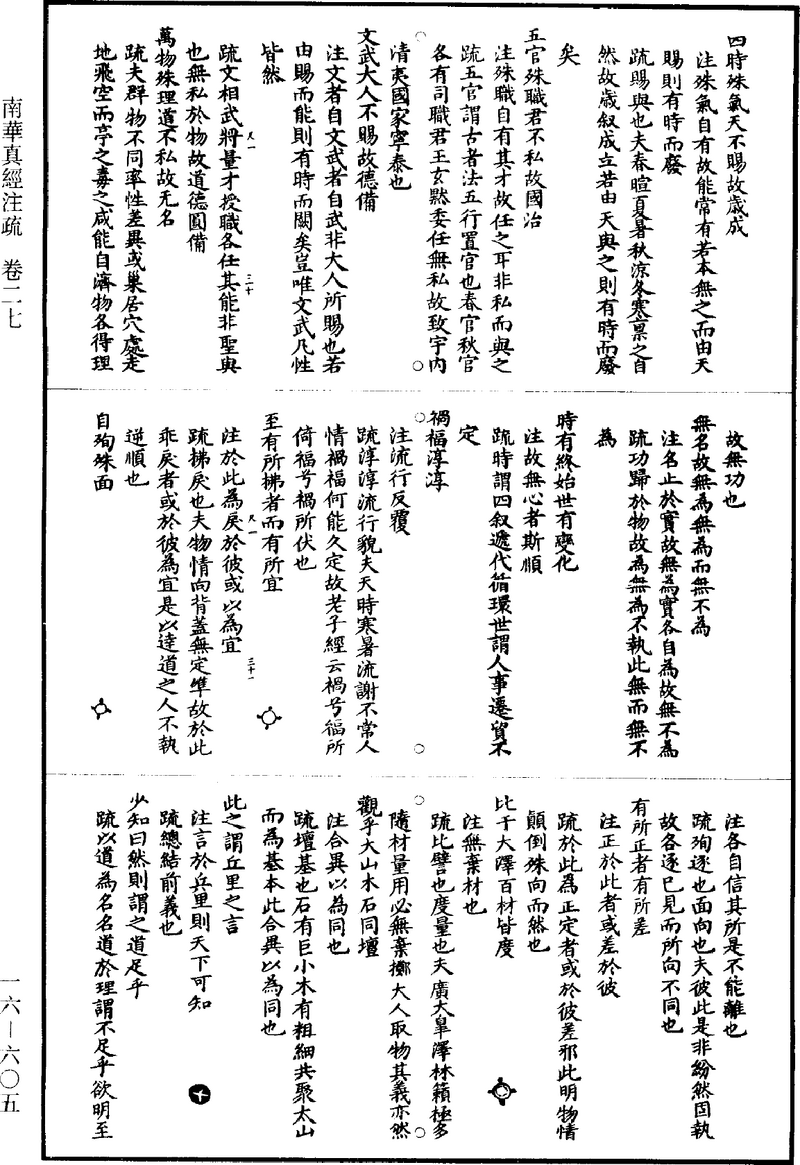 四時殊氣天不賜故歲成
注殊氣自有故能常有若本無之而由天
賜則有時而廢
疏賜與也夫春暄夏暑秋涼冬寒稟之自
然故歲叙成立若由天與之則有時而廢
矣
五官殊職君不私故國治
注殊職自有其才故任之耳非私而與之
疏五官謂古者法五行置官也春官秋官
各有司職君王玄默委任無私故致宇內
清夷國家寧泰也
文武大人不賜故德備
注文者自文武者自武非大人所賜也若
由賜而能則有時而闕矣豈唯文武凡性
皆然
疏文相武將量才授職各任其能非聖與
也無私於物故道德圓備
尺一
三十
萬物殊理道不私故无名
疏夫群物不同率性差異或巢居穴處走
地飛空而亭之毒之咸能自濟物各得理
故無功也
無名故無為無為而無不為
注名止於實故無為實各自為故無不為
疏功歸於物故為無為不執此無而無不
為
時有終始世有變化
注故無心者斯順
疏時謂四叙遞代循環世謂人事遷貿不
定
禍福淳淳
注流行反覆
疏淳淳流行貌夫天時寒暑流謝不常人
情禍福何能久定故老子經云禍兮福所
倚福兮禍所伏也
至有所拂者而有所宜
注於此為戾於彼或以為宜
尺一
三十一
疏拂戾也夫物情向背蓋無定準故於此
乖戾者或於彼為宜是以達道之人不執
逆順也
自殉殊面
注各自信其所是不能離也
疏殉逐也面向也夫彼此是非紛然固執
故各逐己見而所向不同也
有所正者有所差
注正於此者或差於彼
疏於此為正定者或於彼差邪此明物情
顛倒殊向而然也
比于大澤百材皆度
注無棄材也
疏比譬也度量也夫廣大皐澤林籟極多
隨材量用必無棄擲大人取物其義亦然
觀乎大山木石同壇
注合異以為同也
疏壇基也石有巨小木有粗細共聚太山
而為基本此合異以為同也
此之謂丘里之言
注言於丘里則天下可知
疏總結前義也
少知曰然則謂之道足乎
疏以道為名名道於理謂不足乎欲明至
南華真經注疏 卷二七
一六—六〇五